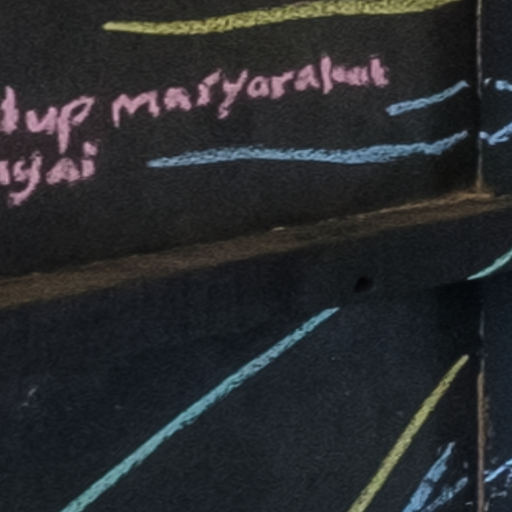 dup masyarakat
ngai